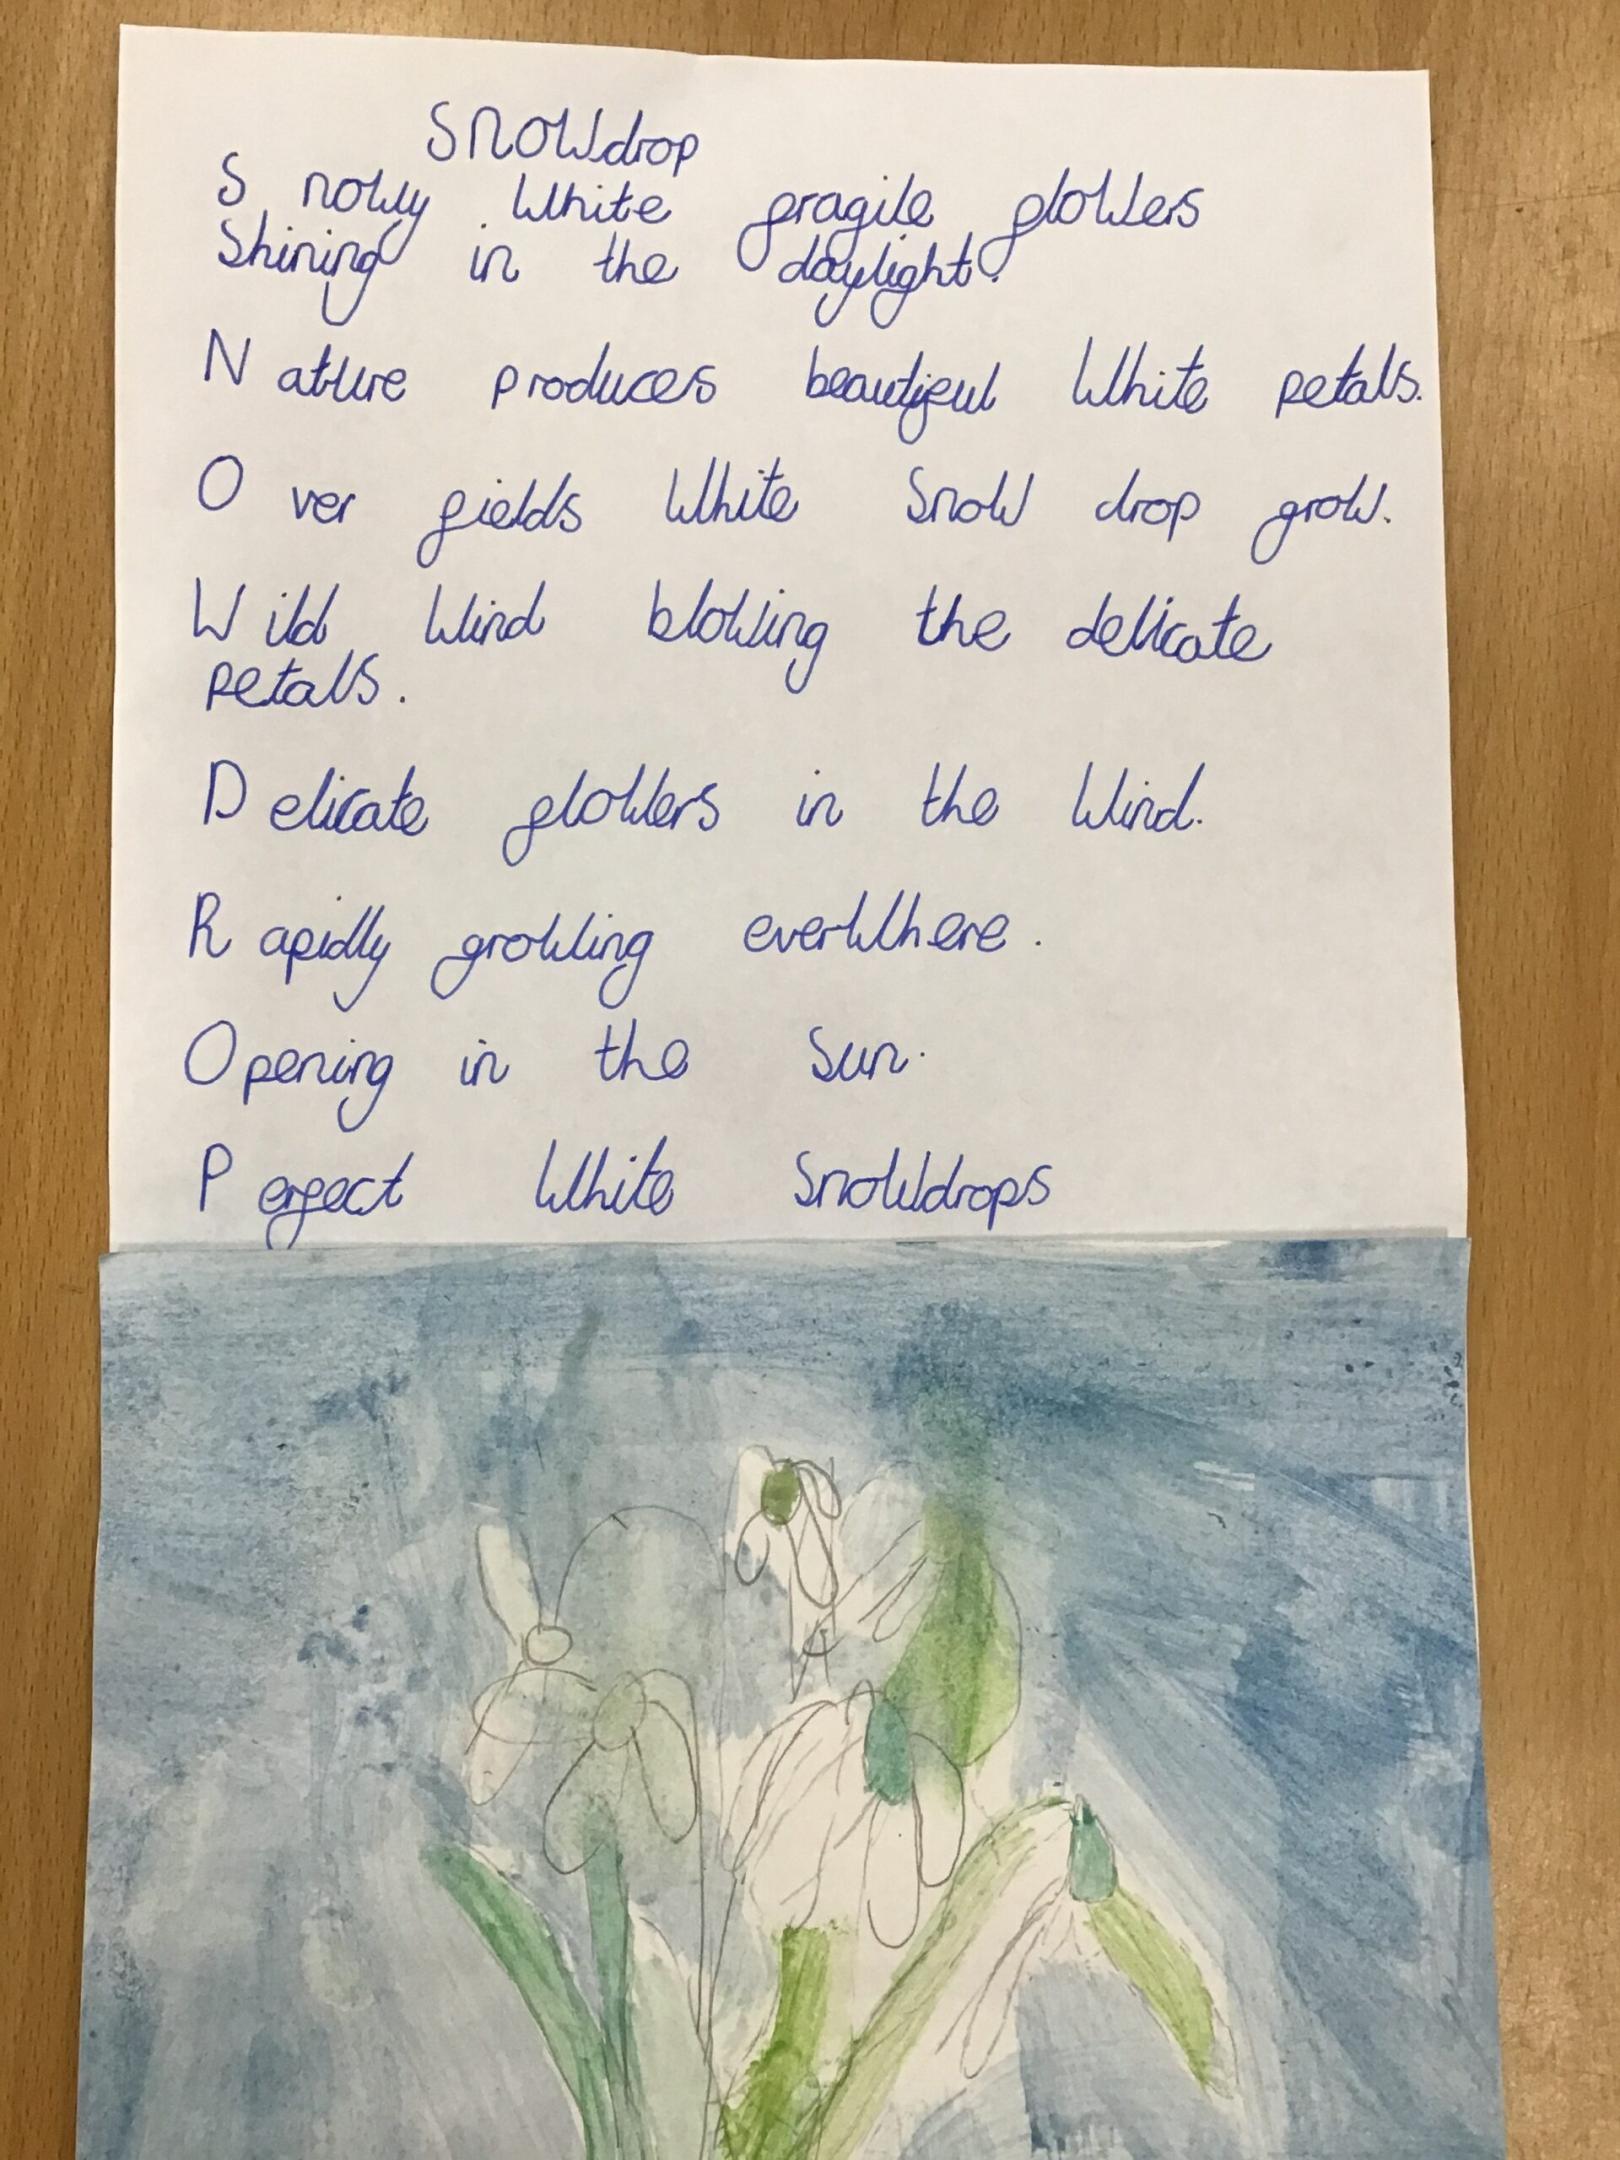 Snowdrop
Snowy White fragile flowers
Shining in the daylight.
Nature produces beautiful White petals.
Over fields White Snow drop grow.
Wild Wind blowing the delicate
petals.
Delicate flowers in the Wind.
Rapidly growing everWhere.
Opening in the Sun.
Perfect White Snowdrops